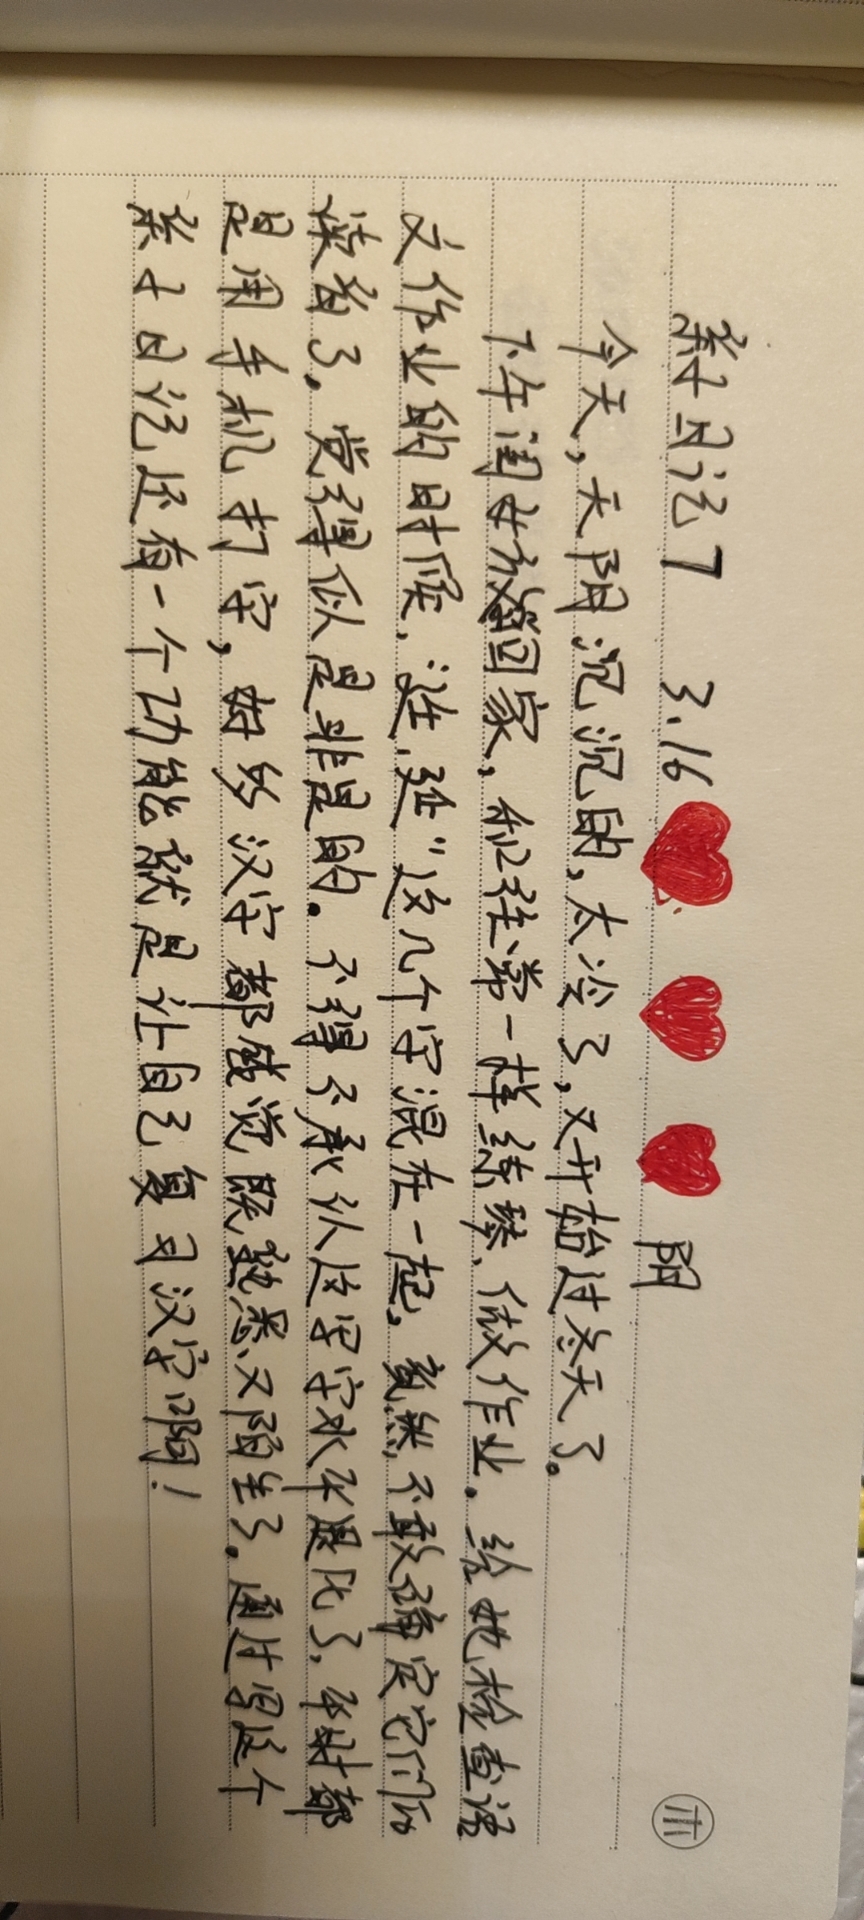 亲子日记7 3.16 阴
今天，天阴沉沉的，太冷了，又开始过冬天了。
下午闺女放学回家，和往常一样练琴、做作业。给她检查语
文作业的时候，"诞、延"这几个字混在一起，竟然不敢确定它们的
读音了。觉得似是非是的。不得不承认这字字水平退化了，平时都
是用手机打字，好多汉字都感觉既熟悉又陌生了。通过写这个
亲子日记还有一个功能就是让自己复习汉字啊！